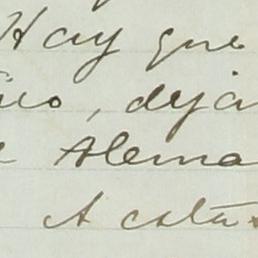 Hay que
, deja
Alema
A esta